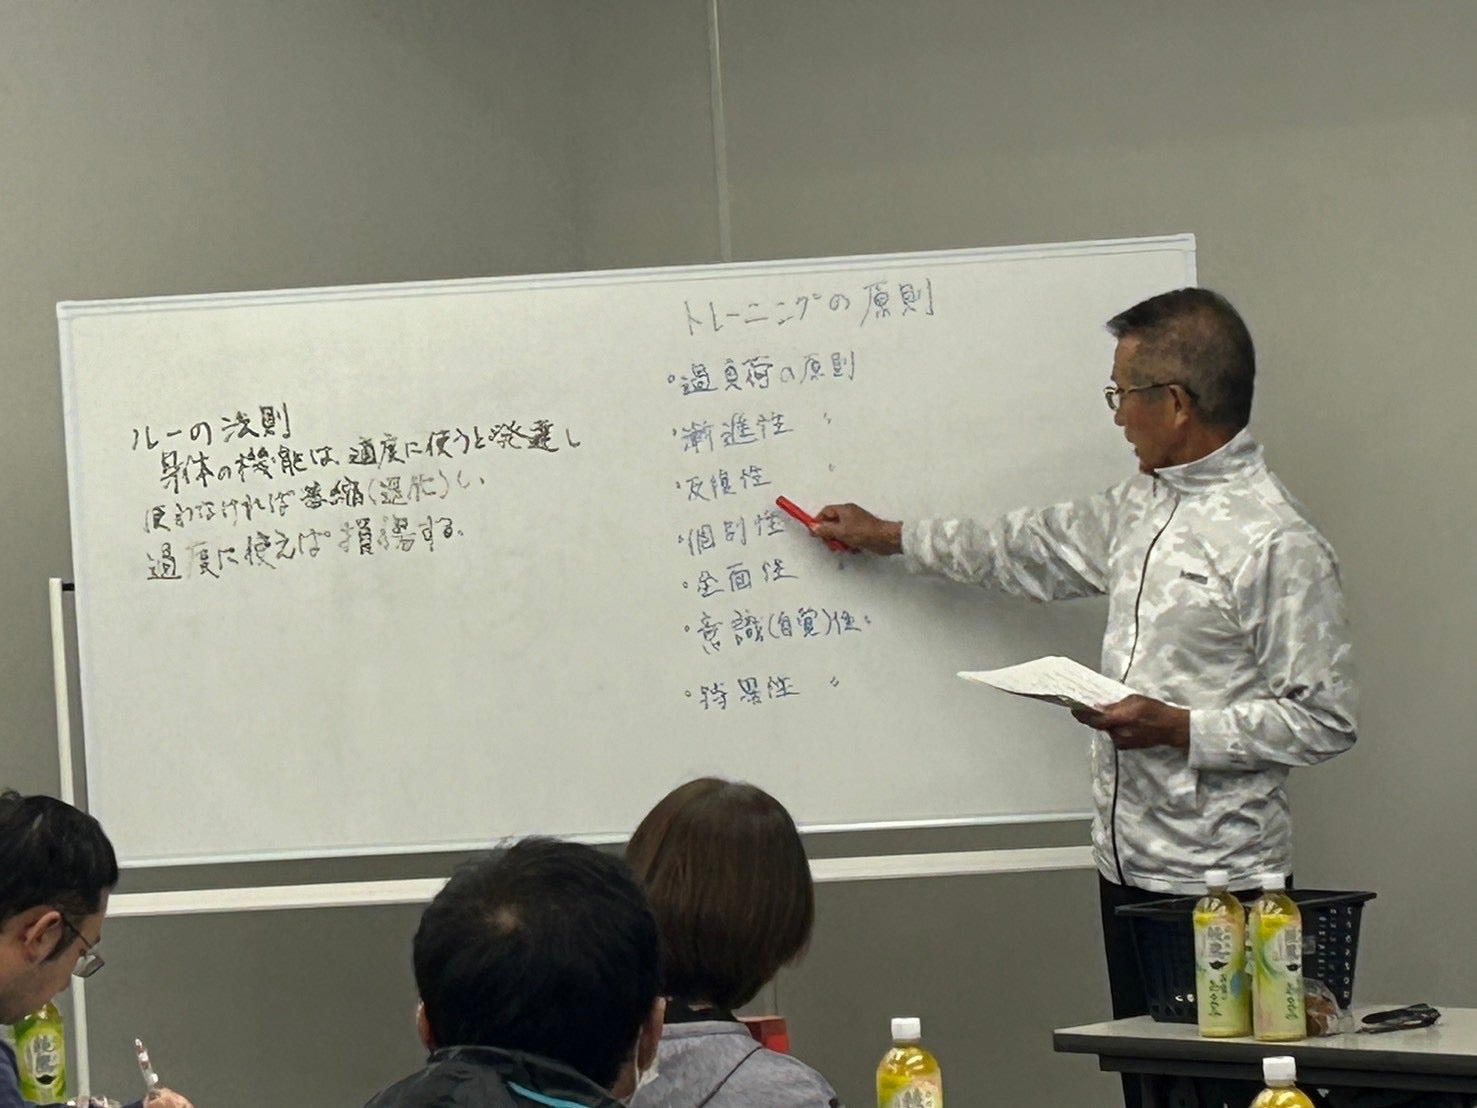 ルーの法則
身体の機能は、適度に使うと発達し
使わなければ萎縮(退化)し、
過度に使えば損傷する。
トレーニングの原則
・過負荷の原則
・漸進性 〃
・反復性 〃
・個別性
・全面性 〃
・意識(自覚)性 〃
・特異性 〃
綾鷹
綾鷹